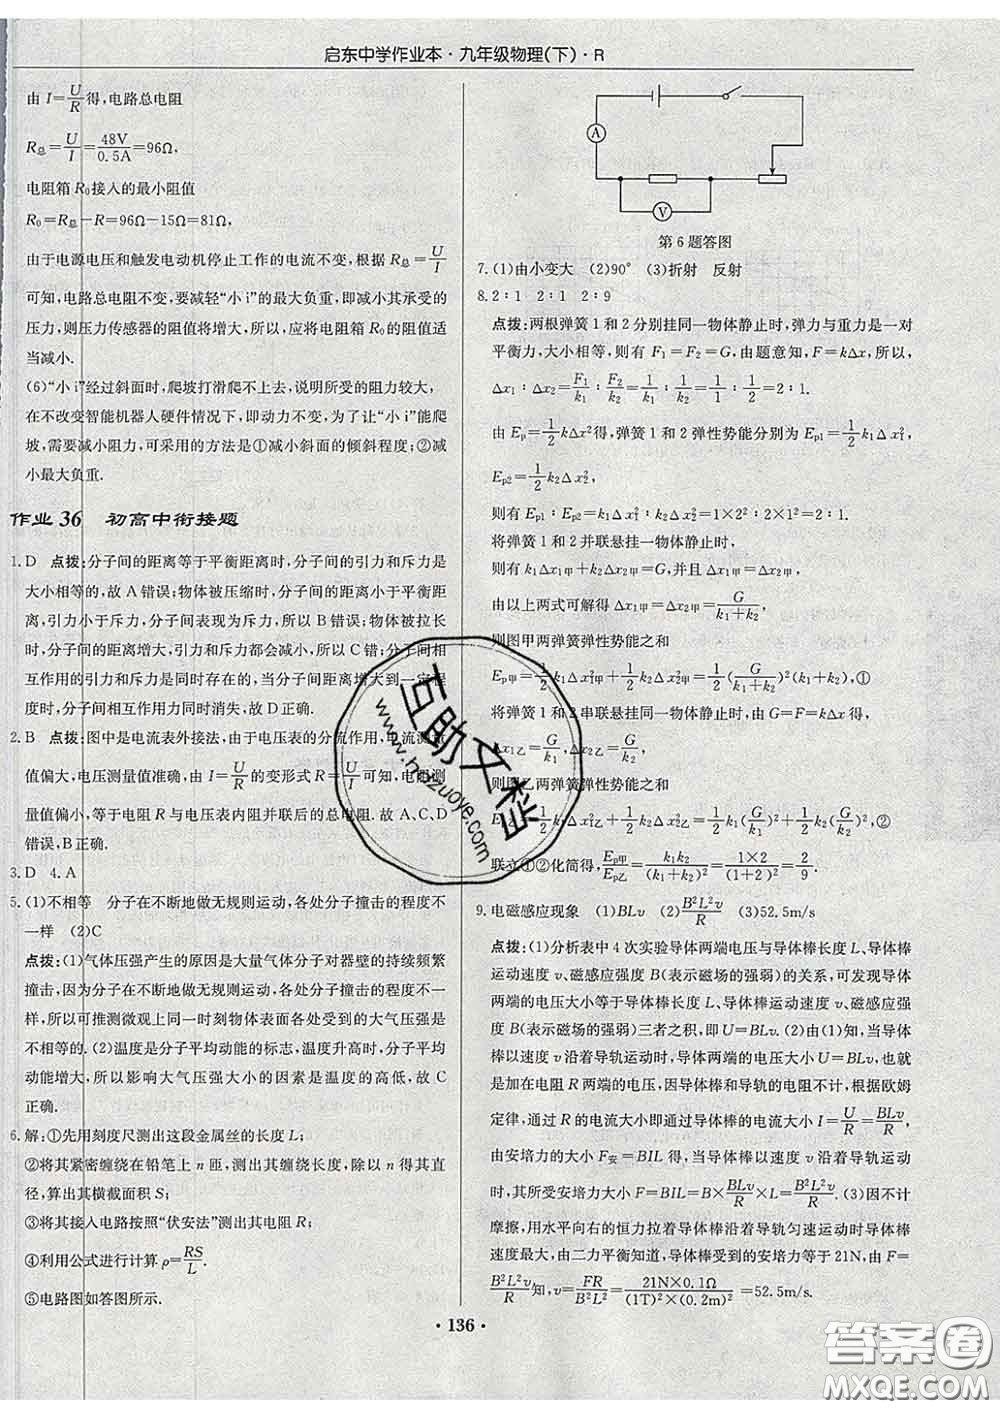 启东中学作业本·九年级物理(下)·R
由 I=U/R得,电路总电阻
R总=U/I=48V/0.5A=96Ω,
电阻箱 R0接入的最小阻值
R0=R总-R=96Ω-15Ω=81Ω,
由于电源电压和触发电动机停止工作的电流不变,根据 R总=U/I
可知,电路总电阻不变,要减轻“小 i”的最大负重,即减小其承受的
压力,则压力传感器的阻值将增大,所以,应将电阻箱 R0的阻值适
当减小.
(6)“小 i”经过斜面时,爬坡打滑爬不上去,说明所受的阻力较大,
在不改变智能机器人硬件情况下,即动力不变,为了让“小 i”能爬
坡,需要减小阻力,可采用的方法是①减小斜面的倾斜程度;②减
小最大负重.
作业 36 初高中衔接题
1.D 点拨:分子间的距离等于平衡距离时,分子间的引力和斥力是
大小相等的,故 A 错误;物体被压缩时,分子间的距离小于平衡距
离,引力小于斥力,分子间表现为斥力,所以 B 错误;物体被拉长
时,分子间的距离增大,引力和斥力都会减小,所以 C 错;分子间相
互作用的引力和斥力是同时存在的,当分子间距离增大到一定程
度时,分子间相互作用力同时消失,故 D 正确.
2.B 点拨:图中是电流表外接法,由于电压表的分流作用,电流测量
值偏大,电压测量值准确,由 I=U/R的变形式 R=U/I可知,电阻测
量值偏小,等于电阻 R 与电压表内阻并联后的总电阻.故 A、C、D
错误,B 正确.
3.D 4.A
5.(1)不相等 分子在不断地做无规则运动,各处分子撞击的程度不
一样 (2)C
点拨:(1)气体压强产生的原因是大量气体分子对器壁的持续频繁
撞击,因为分子在不断地做无规则运动,各处分子撞击的程度不一
样,所以可推测微观上同一时刻物体表面各处受到的大气压强是
不一样的.(2)温度是分子平均动能的标志,温度升高时,分子平均
动能增大,所以影响大气压强大小的因素是温度的高低,故 C
正确.
6.解:①先用刻度尺测出这段金属丝的长度 L;
②将其紧密缠绕在铅笔上 n 匝,测出其缠绕长度,除以 n 得其直
径,算出其横截面积 S;
③将其接入电路按照“伏安法”测出其电阻 R;
④利用公式进行计算 ρ=RS/L.
⑤电路图如答图所示.
A
V
第 6 题答图
7.(1)由小变大 (2)90° (3)折射 反射
8.2∶1 2∶1 2∶9
点拨:两根弹簧 1 和 2 分别挂同一物体静止时,弹力与重力是一对
平衡力,大小相等,则有 F1=F2=G,由题意知,F=kΔx,所以,
Δx1∶Δx2=F1/k1∶F2/k2=1/k1∶1/k2=1/1∶1/2=2∶1.
由 Ep=1/2kΔx²得,弹簧 1 和 2 弹性势能分别为 Ep1=1/2k1Δx1²,
Ep2=1/2k2Δx2².
则有 Ep1∶Ep2=1/2k1Δx1²∶1/2k2Δx2²=1×2²∶2×1²=2∶1.
将弹簧 1 和 2 并联悬挂一物体静止时,
则有 k1Δx1甲+k2Δx2甲=G,并且 Δx1甲=Δx2甲,
由以上两式可解得 Δx1甲=Δx2甲=G/(k1+k2),
则图甲两弹簧弹性势能之和
Ep甲=1/2k1Δx1甲²+1/2k2Δx2甲²=1/2(G/(k1+k2))²(k1+k2),①
将弹簧 1 和 2 串联悬挂同一物体静止时,由 G=F=kΔx 得,
Δx1乙=G/k1,Δx2乙=G/k2,
则图乙两弹簧弹性势能之和
Ep乙=1/2k1Δx1乙²+1/2k2Δx2乙²=1/2k1(G/k1)²+1/2k2(G/k2)²,②
联立①②化简得,Ep甲/Ep乙=k1k2/(k1+k2)²=1×2/(1+2)²=2/9.
9.电磁感应现象 (1)BLv (2)B²L²v/R (3)52.5m/s
点拨:(1)分析表中 4 次实验导体两端电压与导体棒长度 L、导体棒
运动速度 v、磁感应强度 B(表示磁场的强弱)的关系,可发现导体
两端的电压大小等于导体棒长度 L、导体棒运动速度 v、磁感应强
度 B(表示磁场的强弱)三者之积,即 U=BLv.(2)由(1)知,当导体
棒以速度 v 沿着导轨运动时,导体两端的电压大小 U=BLv,也就
是加在电阻 R 两端的电压,因导体棒和导轨的电阻不计,根据欧姆
定律,通过 R 的电流大小即通过导体棒的电流大小 I=U/R=BLv/R,
由安培力的大小 F安=BIL 得,当导体棒以速度 v 沿着导轨运动
时,其所受安培力大小 F=BIL=B×BLv/R×L=B²L²v/R.(3)因不计
摩擦,用水平向右的恒力拉着导体棒沿着导轨匀速运动时导体棒
速度最大,由二力平衡知道,导体棒受到的安培力等于 21N,由 F=
B²L²v/R知,v=FR/B²L²=21N×0.1Ω/(1T)²×(0.2m)²=52.5m/s
· 136 ·
互助文档
www.huzuoye.com
答案圈
MXQE.COM